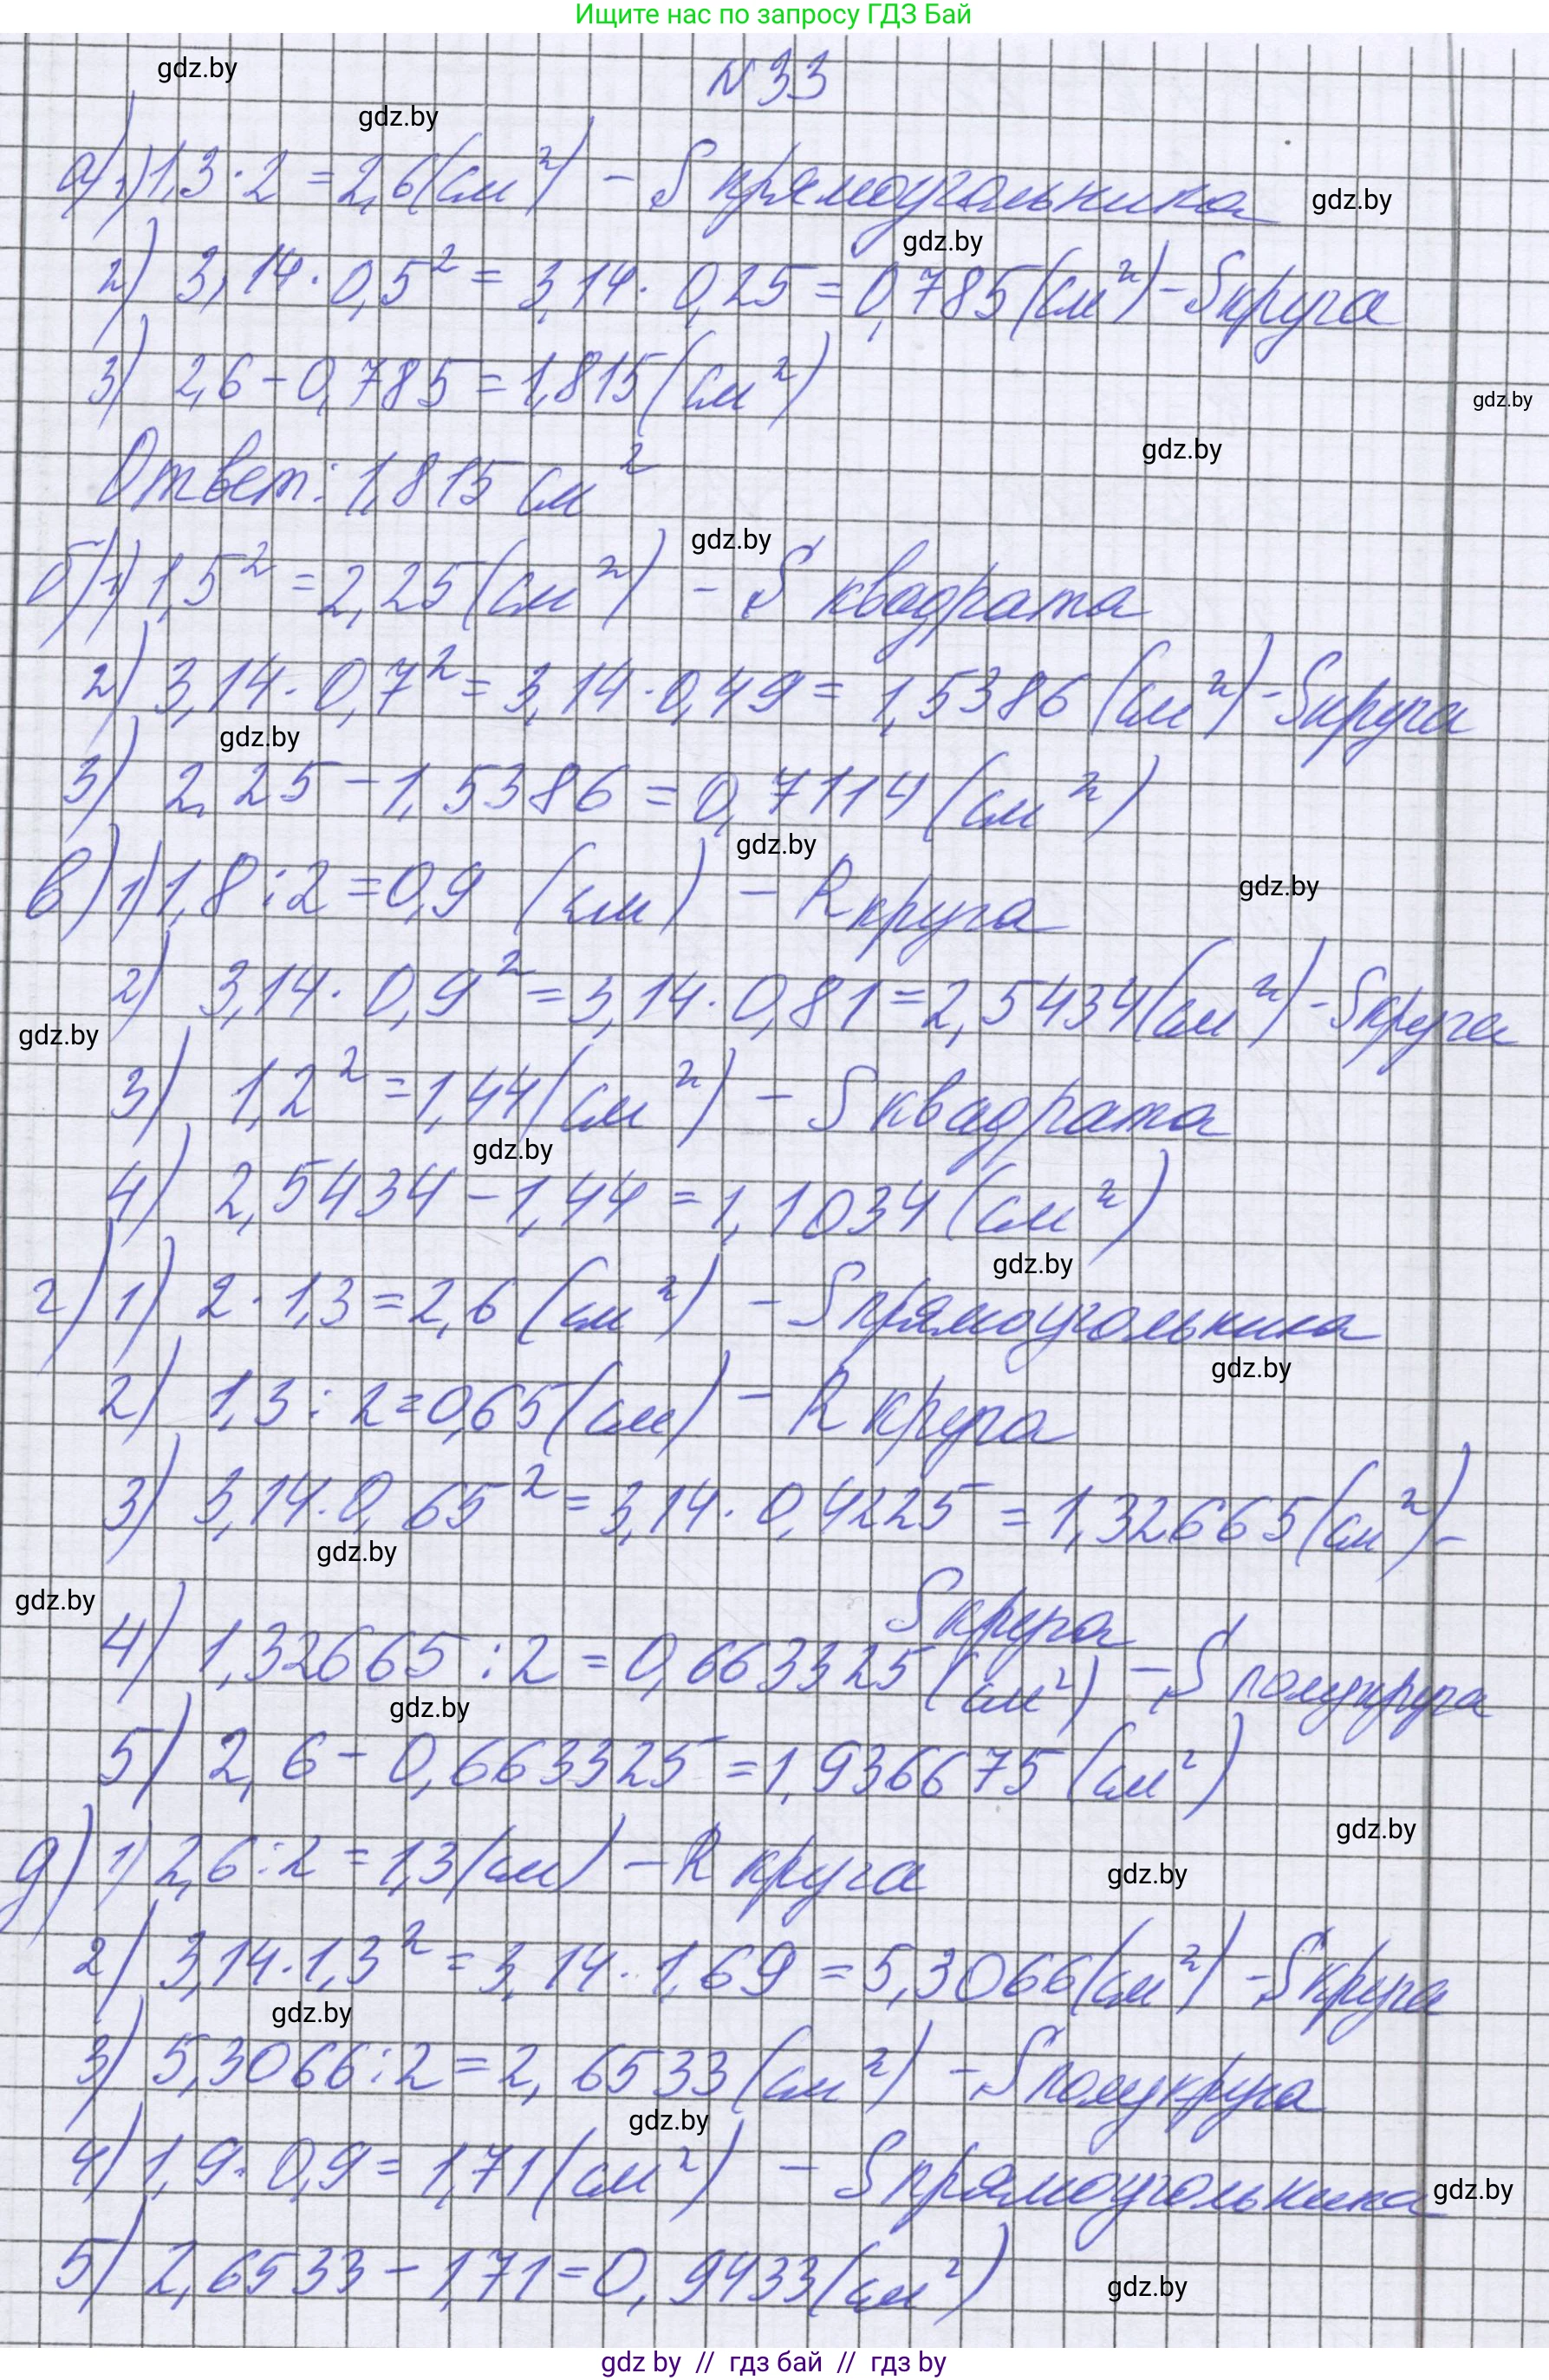 Ищите нас по запросу ГДЗ Бай
N 33
gdz.by
gdz.by
а) 1) 1,3 · 2 = 2,6 (см²) - S прямоугольника
gdz.by
gdz.by
2) 3,14 · 0,5² = 3,14 · 0,25 = 0,785 (см²) - S круга
3) 2,6 - 0,785 = 1,815 (см²)
gdz.by
gdz.by
Ответ: 1,815 см²
gdz.by
б) 1) 1,5² = 2,25 (см²) - S квадрата
2) 3,14 · 0,7² = 3,14 · 0,49 = 1,5386 (см²) - S круга
gdz.by
3) 2,25 - 1,5386 = 0,7114 (см²)
gdz.by
в) 1) 1,8 : 2 = 0,9 (см) - R круга
gdz.by
2) 3,14 · 0,9² = 3,14 · 0,81 = 2,5434 (см²) - S круга
gdz.by
3) 1,2² = 1,44 (см²) - S квадрата
gdz.by
4) 2,5434 - 1,44 = 1,1034 (см²)
gdz.by
г) 1) 2 · 1,3 = 2,6 (см²) - S прямоугольника
gdz.by
2) 1,3 : 2 = 0,65 (см) - R круга
3) 3,14 · 0,65² = 3,14 · 0,4225 = 1,32665 (см²) -
gdz.by
gdz.by
S круга
4) 1,32665 : 2 = 0,663325 (см²) - S полукруга
gdz.by
5) 2,6 - 0,663325 = 1,936675 (см²)
gdz.by
д) 1) 2,6 : 2 = 1,3 (см) - R круга
gdz.by
2) 3,14 · 1,3² = 3,14 · 1,69 = 5,3066 (см²) - S круга
gdz.by
3) 5,3066 : 2 = 2,6533 (см²) - S полукруга
gdz.by
4) 1,9 · 0,9 = 1,71 (см²) - S прямоугольника
gdz.by
5) 2,6533 - 1,71 = 0,9433 (см²)
gdz.by
gdz by // гдз бай // гдз by